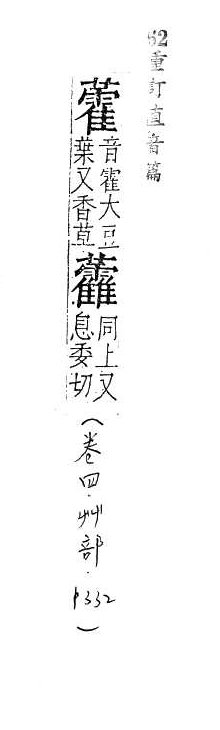 62重訂直音篇
藿
音霍大豆
葉又香草
同上又
息委切
(卷四·艸部·P332)